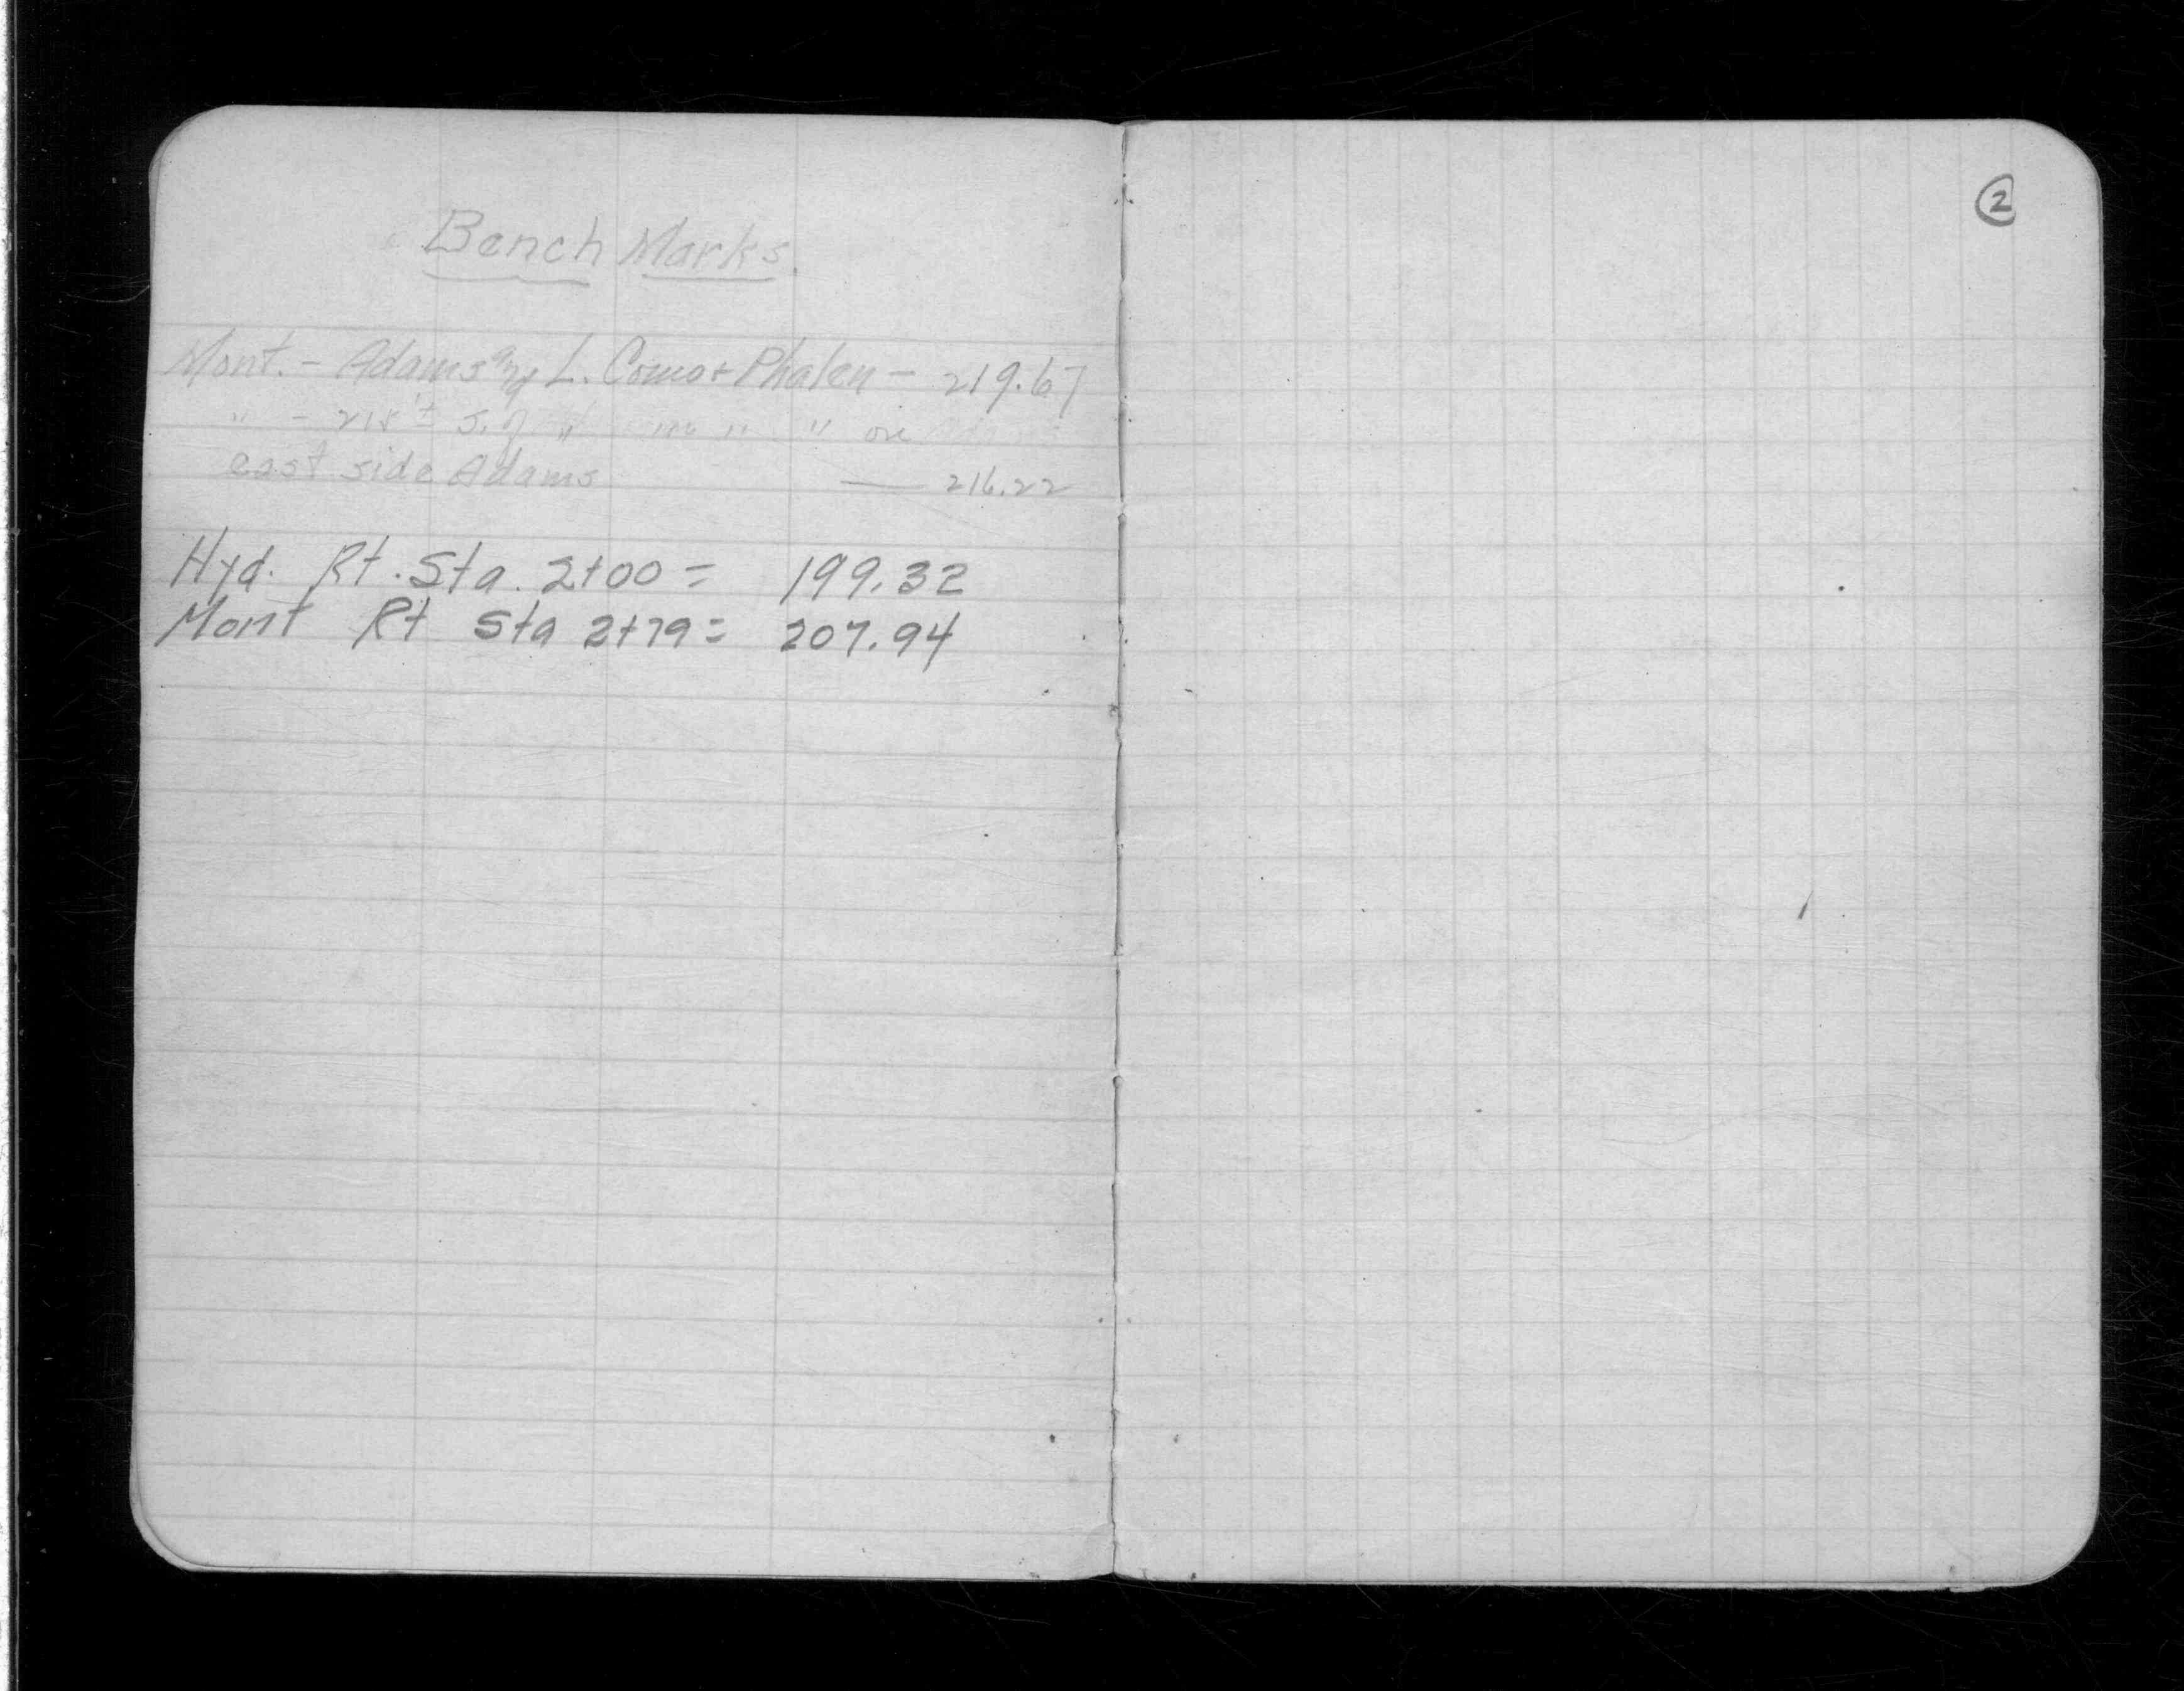 Bench Marks.
Mont. - Adams and L. Como + Phalen - 219.67
" - 218'± S. of " " " " on
east side Adams — 216.22
Hyd. Rt. Sta. 2+00 = 199.32
Mont Rt Sta 2+79 = 207.94
2